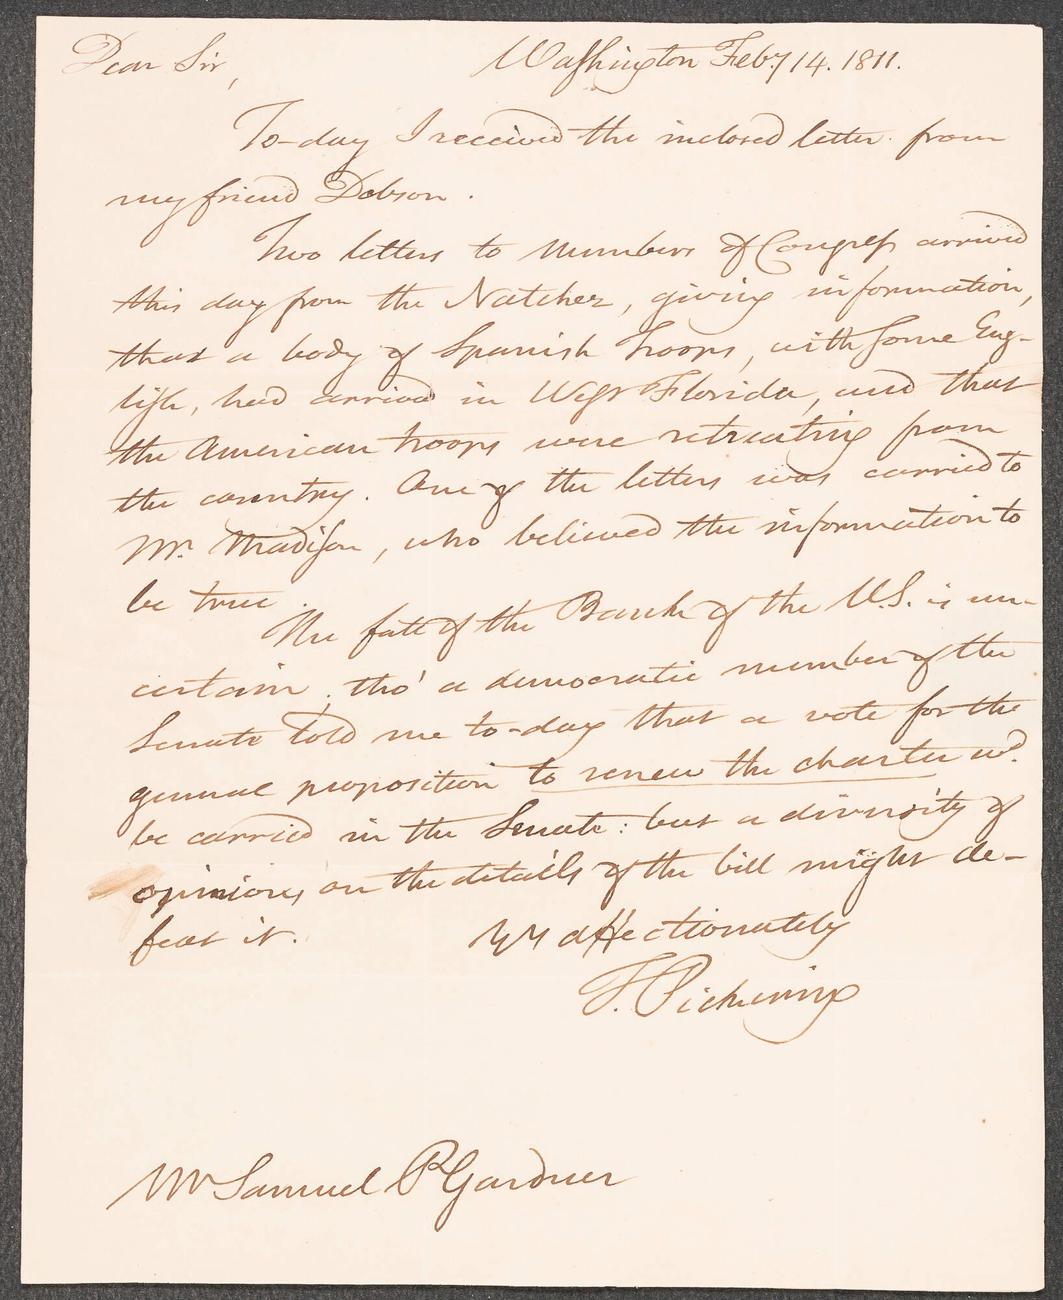 Dear Sir,
Washington Feby 14. 1811.
To-day I received the inclosed letter from
my friend Dobson.
Two letters to members of Congress arrived
this day from the Natchez, giving information,
that a body of Spanish troops, with some Eng-
lish, had arrived in West Florida, and that
the American troops were retreating from
the country. One of the letters was carried to
Mr. Madison, who believed the information to
be true.
The fate of the Bank of the U.S. is un-
certain, tho' a democratic member of the
Senate told me to-day that a vote for the
general proposition to renew the charter wd.
be carried in the Senate: but a diversity of
opinions on the details of the bill might de-
feat it.
Yrs affectionately
T. Pickering
Mr Samuel P Gardner